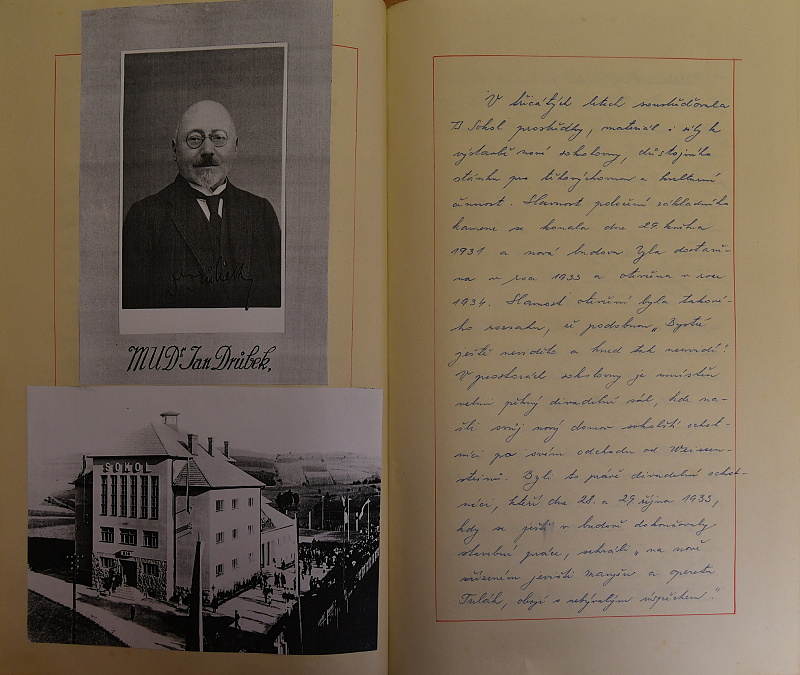 MUDr Jan Drůbek.
SOKOL
V třicátých letech soustřeďovala
TJ Sokol prostředky, materiál i síly k
výstavbě nové sokolovny, důstojného
stánku pro tělovýchovnou a kulturní
činnost. Slavnost položení základního
kamene se konala dne 29. května
1931 a nová budova byla dostavě-
na v roce 1933 a otevřena v roce
1934. Slavnost otevření byla takové-
ho rozsahu, že podobnou „Bystré
ještě nevidělo a hned tak neuvidí".
V prostorách sokolovny je umístěn
velmi pěkný divadelní sál, kde na-
šli svůj nový domov sokolští ochot-
níci po svém odchodu od Weissen-
steinů. Byli to právě divadelní ochot-
níci, kteří dne 28. a 29. října 1933,
kdy se ještě v budově dokončovaly
stavební práce, sehráli „na nově
zřízeném jevišti Maryšu a operetu
Tulák, obojí s nebývalým úspěchem."